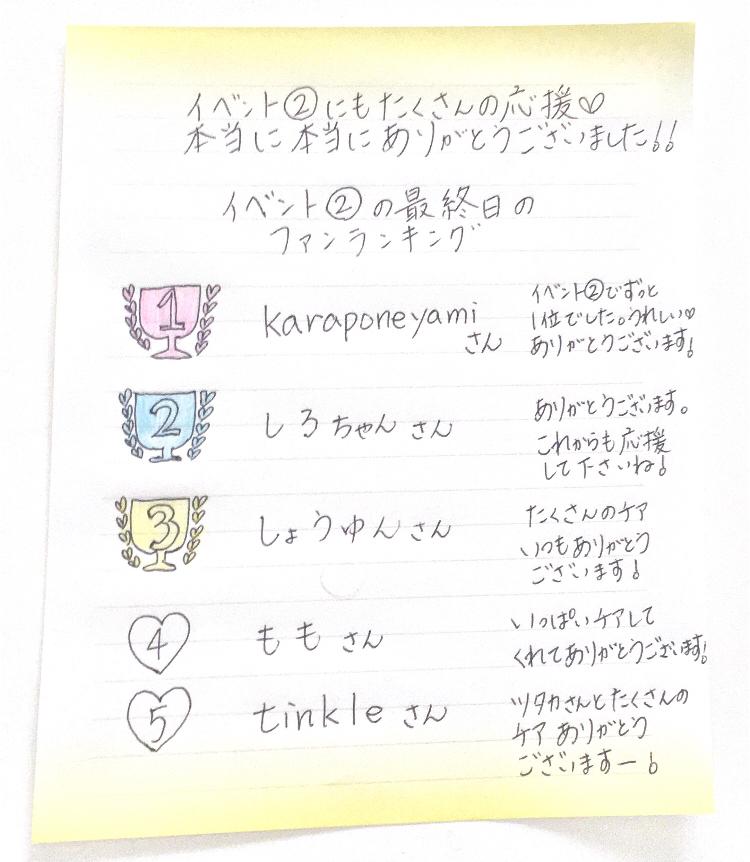 イベント②にもたくさんの応援♡
本当に本当にありがとうございました!!
イベント②の最終日の
ファンランキング
1
karaponeyami
さん
イベント②でずっと
1位でした。うれしい♡
ありがとうございます!
2
しろちゃん さん
ありがとうございます。
これからも応援
して下さいね!
3
しょうゆん さん
たくさんのケア
いつもありがとう
ございます!
4
もも さん
いっぱいケアして
くれてありがとうございます!
5
tinkle さん
ツタカさんとたくさんの
ケア ありがとう
ございますー!